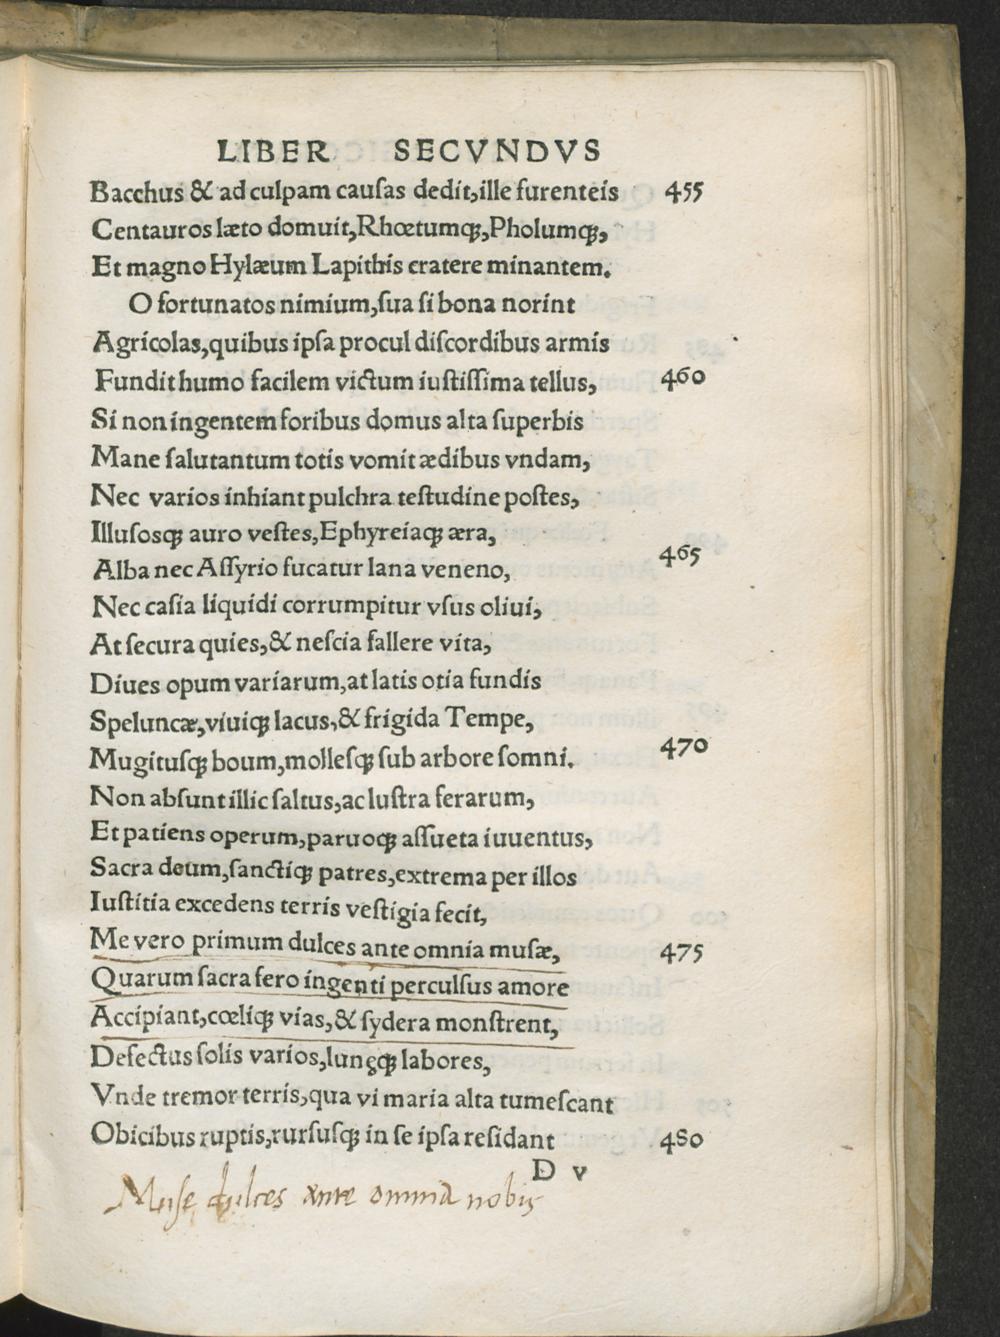 LIBER SECVNDVS
Bacchus & ad culpam cauſas dedit,ille furenteis 455
Centauros læto domuit,Rhœtumq;,Pholumq;,
Et magno Hylæum Lapithis cratere minantem.
O fortunatos nimium,ſua ſi bona norint
Agricolas,quibus ipſa procul diſcordibus armis
Fundit humo facilem victum iuſtiſſima tellus, 460
Si non ingentem foribus domus alta ſuperbis
Mane ſalutantum totis vomit ædibus vndam,
Nec varios inhiant pulchra teſtudine poſtes,
Illuſosq; auro veſtes,Ephyreiaq; æra,
Alba nec Aſſyrio fucatur lana veneno, 465
Nec caſia liquidi corrumpitur vſus oliui,
At ſecura quies,& neſcia fallere vita,
Diues opum variarum,at latis otia fundis
Speluncæ,viuiq; lacus,& frigida Tempe,
Mugituſq; boum,molleſq; ſub arbore ſomni. 470
Non abſunt illic ſaltus,ac luſtra ferarum,
Et patiens operum,paruoq; aſſueta iuuentus,
Sacra deum,ſanctiq; patres,extrema per illos
Iuſtitia excedens terris veſtigia fecit,
Me vero primum dulces ante omnia muſæ, 475
Quarum ſacra fero ingenti perculſus amore
Accipiant,cœliq; vias,& ſydera monſtrent,
Defectus ſolis varios,lunęq; labores,
Vnde tremor terris,qua vi maria alta tumeſcant
Obicibus ruptis,rurſuſq; in ſe ipſa reſidant 480
D v
Muse dulces ante omnia nobis